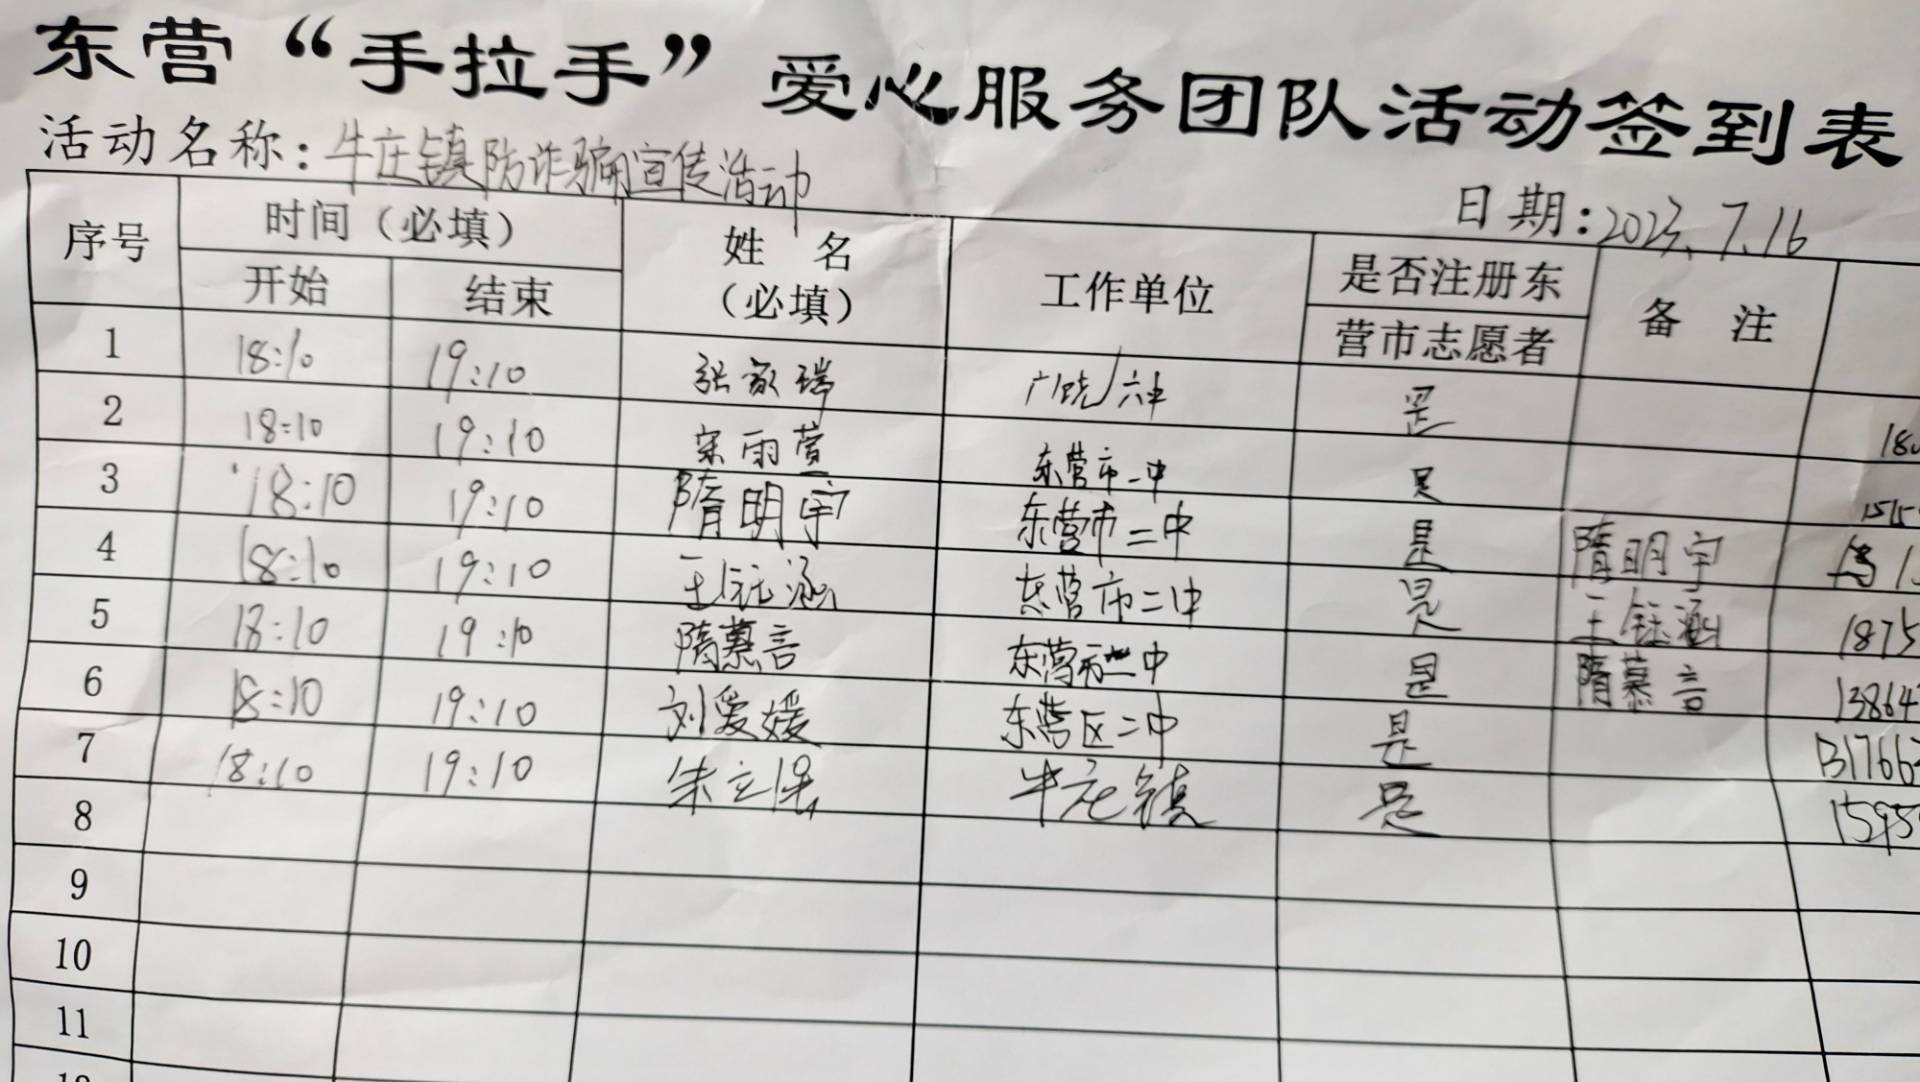 东营“手拉手”爱心服务团队活动签到表
活动名称:牛庄镇防诈骗宣传活动
日期:2023.7.16
序号 时间(必填) 姓 名(必填) 工作单位 是否注册东营市志愿者 备 注
开始 结束
1 18:10 19:10 张家瑞 六中 是
2 18:10 19:10 宋雨萱 东营市一中 是 180
3 18:10 19:10 隋明宇 东营市二中 是 隋明宇
4 18:10 19:10 王钰涵 东营市二中 是 王钰涵 1875
5 18:10 19:10 隋慕言 东营市二中 是 隋慕言 13864
6 18:10 19:10 刘爱媛 东营区二中 是 131766
7 18:10 19:10 朱立保 牛庄镇 是 1595
8
9
10
11
12